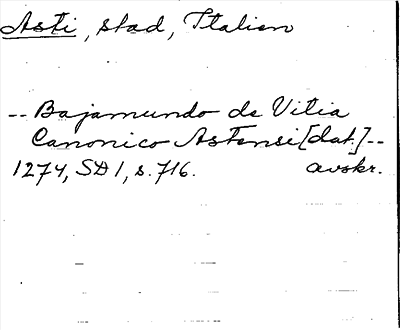 Asti, stad, Italien
-- Bajamundo de Vitia
Canonico Astensi [dat.] --
1274, SD 1, s. 716. avskr.